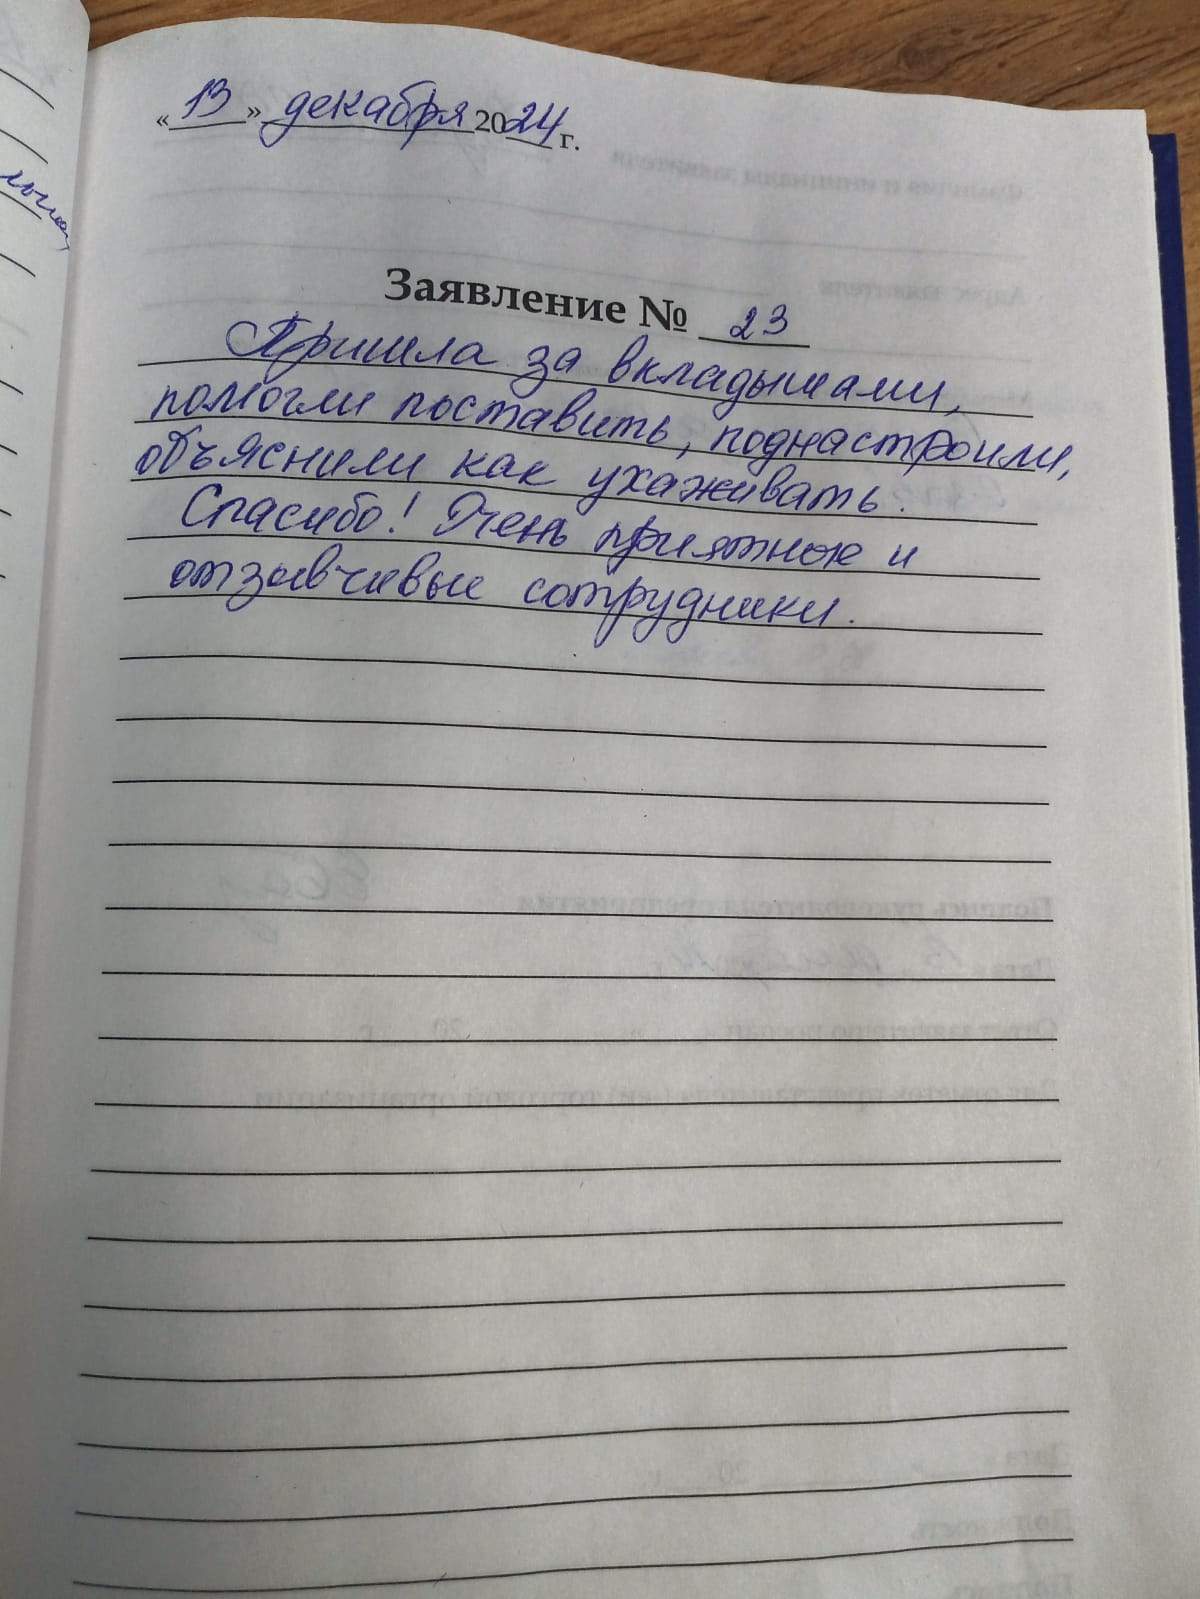 «13» декабря 2024 г.
Заявление № 23
Пришла за вкладышами,
помогли поставить, поднастроили,
объяснили как ухаживать.
Спасибо! Очень приятные и
отзывчивые сотрудники.